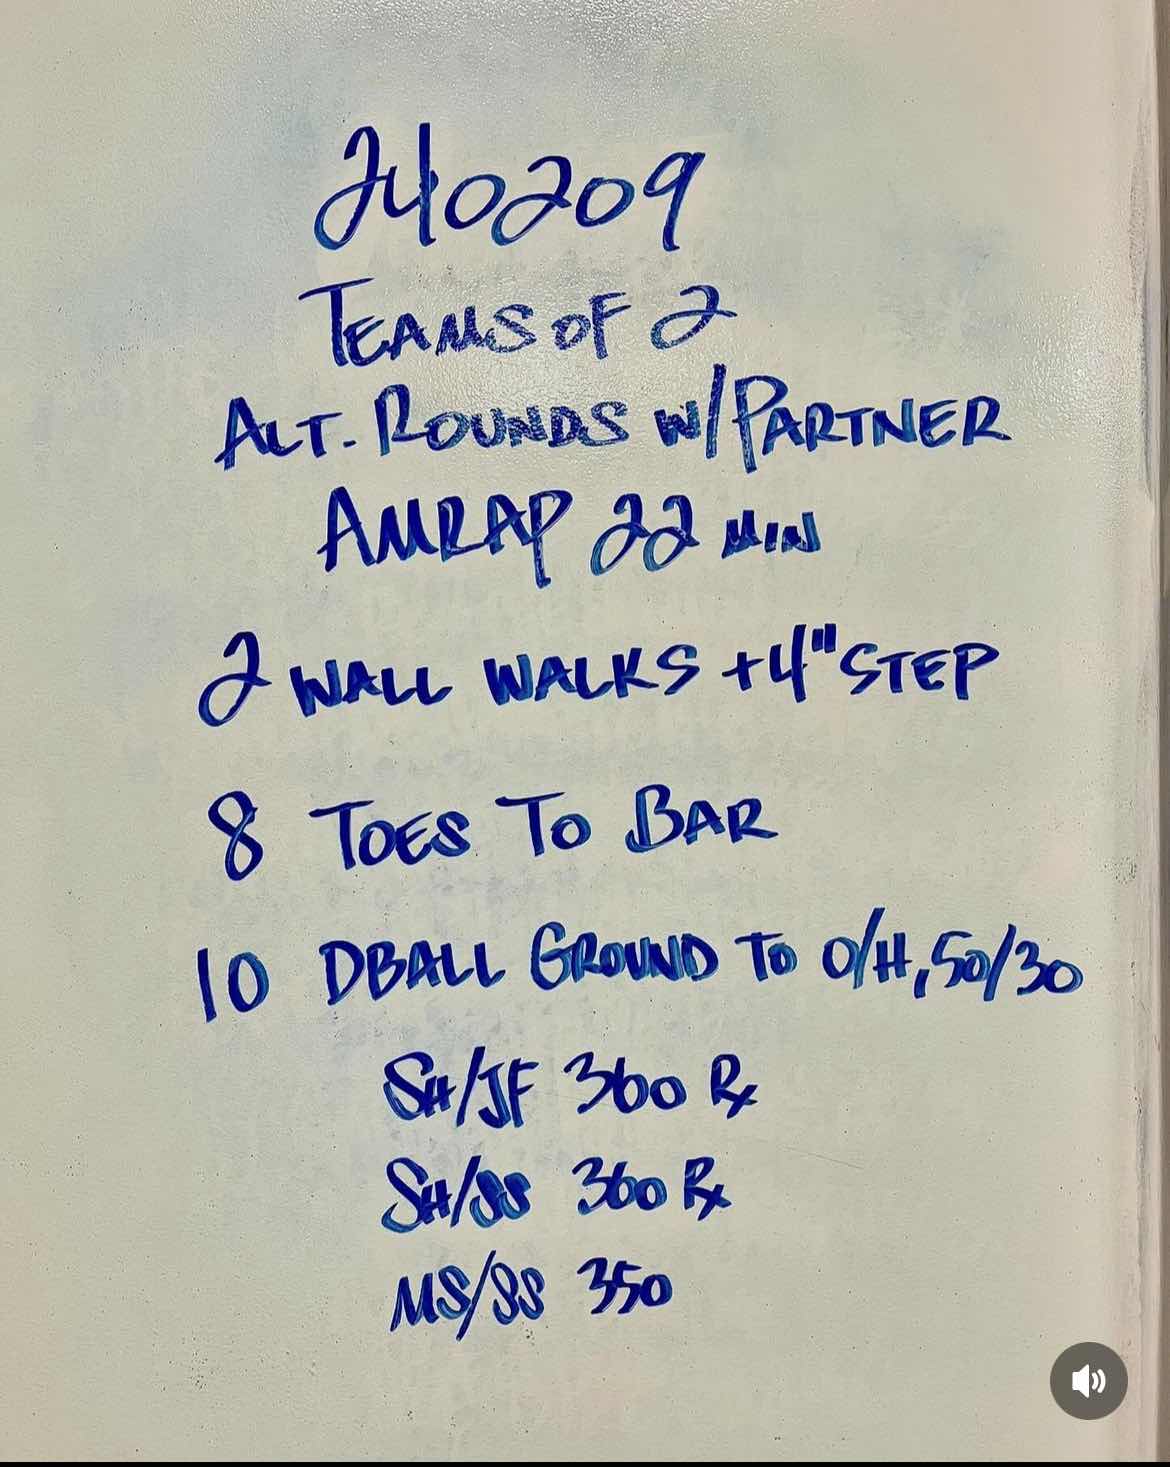 240209
TEAMS OF 2
ALT. ROUNDS W/ PARTNER
AMRAP 22 MIN
2 WALL WALKS +4" STEP
8 TOES TO BAR
10 DBALL GROUND TO O/H, 50/30
SH/JF 360 Rx
SH/SS 360 Rx
MS/SS 350